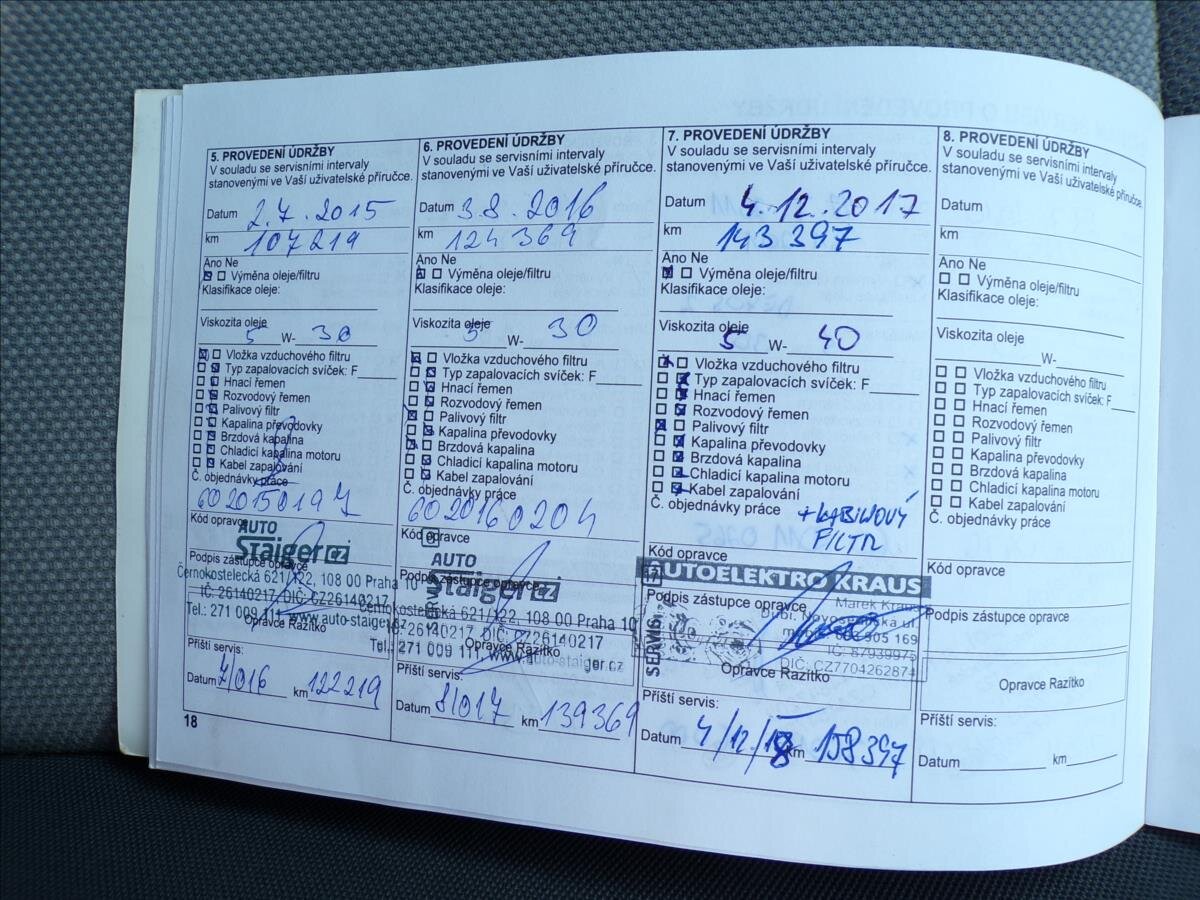 5. PROVEDENÍ ÚDRŽBY
V souladu se servisními intervaly
stanovenými ve Vaší uživatelské příručce.
Datum 2.7.2015
km 107219
Ano Ne
Výměna oleje/filtru
Klasifikace oleje:
Viskozita oleje
5 W- 30
Vložka vzduchového filtru
Typ zapalovacích svíček: F
Hnací řemen
Rozvodový řemen
Palivový filtr
Kapalina převodovky
Brzdová kapalina
Chladicí kapalina motoru
Kabel zapalování
Č. objednávky práce
Kód opravce
AUTO
Staiger.cz
Podpis zástupce opravce
Černokostelecká 621/122, 108 00 Praha 10
IČ: 26140217, DIČ: CZ26140217
Tel.: 271 009 111, www.auto-staiger.cz
Opravce Razítko
Příští servis:
Datum 7/016 km 122219
18
6. PROVEDENÍ ÚDRŽBY
V souladu se servisními intervaly
stanovenými ve Vaší uživatelské příručce.
Datum 3.8.2016
km 124369
Ano Ne
Výměna oleje/filtru
Klasifikace oleje:
Viskozita oleje
5 W- 30
Vložka vzduchového filtru
Typ zapalovacích svíček: F
Hnací řemen
Rozvodový řemen
Palivový filtr
Kapalina převodovky
Brzdová kapalina
Chladicí kapalina motoru
Kabel zapalování
Č. objednávky práce
6020160204
Kód opravce
AUTO
Staiger.cz
Podpis zástupce opravce
Černokostelecká 621/122, 108 00 Praha 10
IČ: 26140217, DIČ: CZ26140217
Opravce Razítko
Tel.: 271 009 111, www.auto-staiger.cz
Příští servis:
Datum 8/017 km 139369
7. PROVEDENÍ ÚDRŽBY
V souladu se servisními intervaly
stanovenými ve Vaší uživatelské příručce.
Datum 4.12.2017
km 143 397
Ano Ne
Výměna oleje/filtru
Klasifikace oleje:
Viskozita oleje
5 W- 40
Vložka vzduchového filtru
Typ zapalovacích svíček: F
Hnací řemen
Rozvodový řemen
Palivový filtr
Kapalina převodovky
Brzdová kapalina
Chladicí kapalina motoru
Kabel zapalování
Č. objednávky práce
+KABINOVÝ
FILTR
Kód opravce
AUTOELEKTRO KRAUS
Podpis zástupce opravce
Marek Kraus
905 169
IČ: 87939975
DIČ: CZ7704262874
SERVIS
Opravce Razítko
Příští servis:
Datum 4/12/18 km 158397
8. PROVEDENÍ ÚDRŽBY
V souladu se servisními intervaly
stanovenými ve Vaší uživatelské příručce.
Datum
km
Ano Ne
Výměna oleje/filtru
Klasifikace oleje:
Viskozita oleje
W-
Vložka vzduchového filtru
Typ zapalovacích svíček: F
Hnací řemen
Rozvodový řemen
Palivový filtr
Kapalina převodovky
Brzdová kapalina
Chladicí kapalina motoru
Kabel zapalování
Č. objednávky práce
Kód opravce
Podpis zástupce opravce
Opravce Razítko
Příští servis:
Datum km